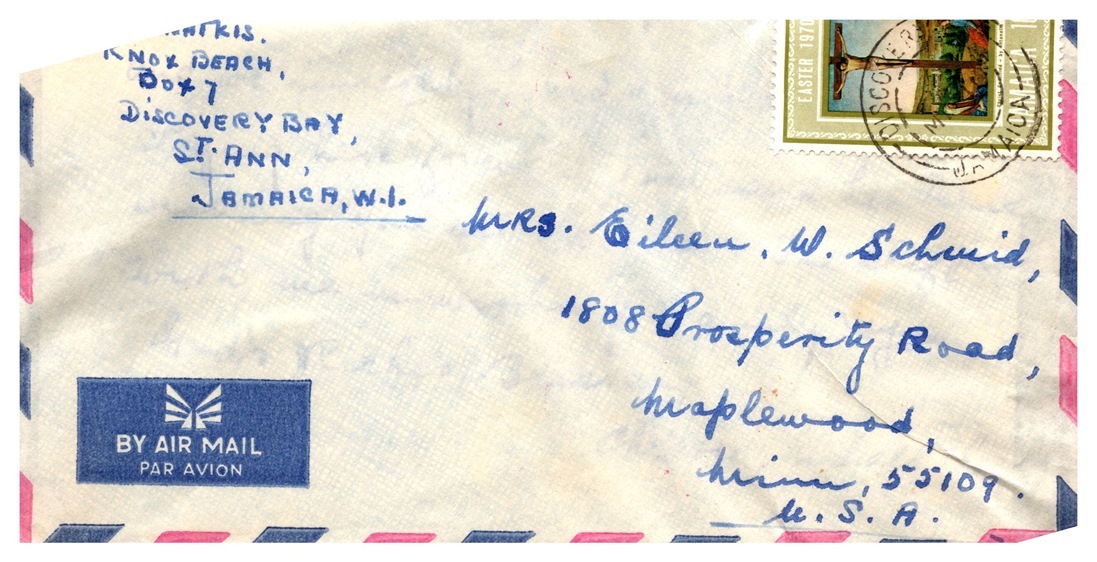 KNOX BEACH,
BOX 7
DISCOVERY BAY,
ST. ANN,
JAMAICA, W.I.
EASTER 1970
DISCOVERY
JAMAICA
Mrs. Eileen. W. Schmid,
1808 Prosperity Road,
Maplewood,
Minn, 55109.
U. S. A.
BY AIR MAIL
PAR AVION